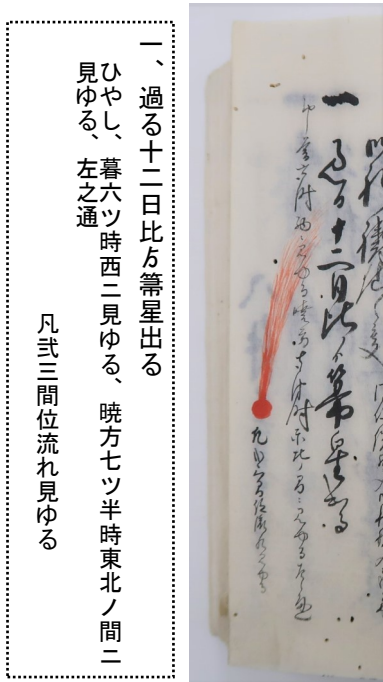 一、過る十二日比ゟ箒星出る
ひやし、暮六ツ時西ニ見ゆる、暁方七ツ半時東北ノ間ニ
見ゆる、左之通
凡弐三間位流れ見ゆる
一 過る十二日比ゟ箒星出る
凡弐三間位流れ見ゆる